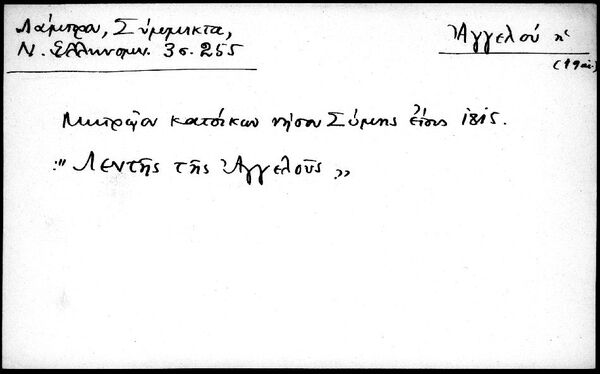 Λάμπρου, Σύμμικτα,
Ν. Ελληνομν. 3 σ. 255
Ἀγγελού ἡ
(19 αἰ.)
Μητρῷον κατοίκων νήσου Σύμης ἔτους 1815.
" Λεντῆς τῆς Ἀγγελοῦς "